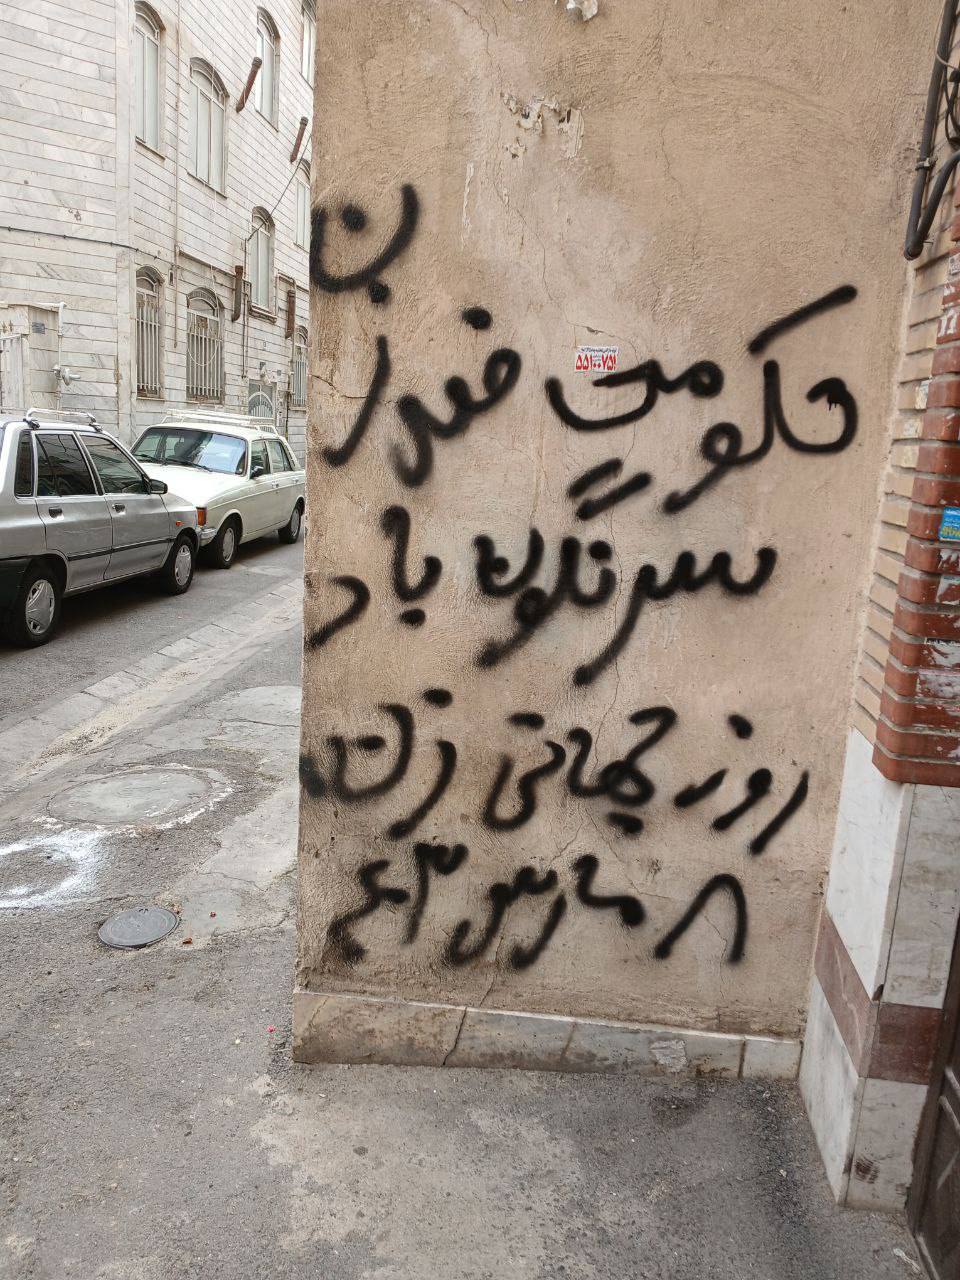 حکومت ضد زن
سرنگون باد
روز جهانی زن
۸ مارس